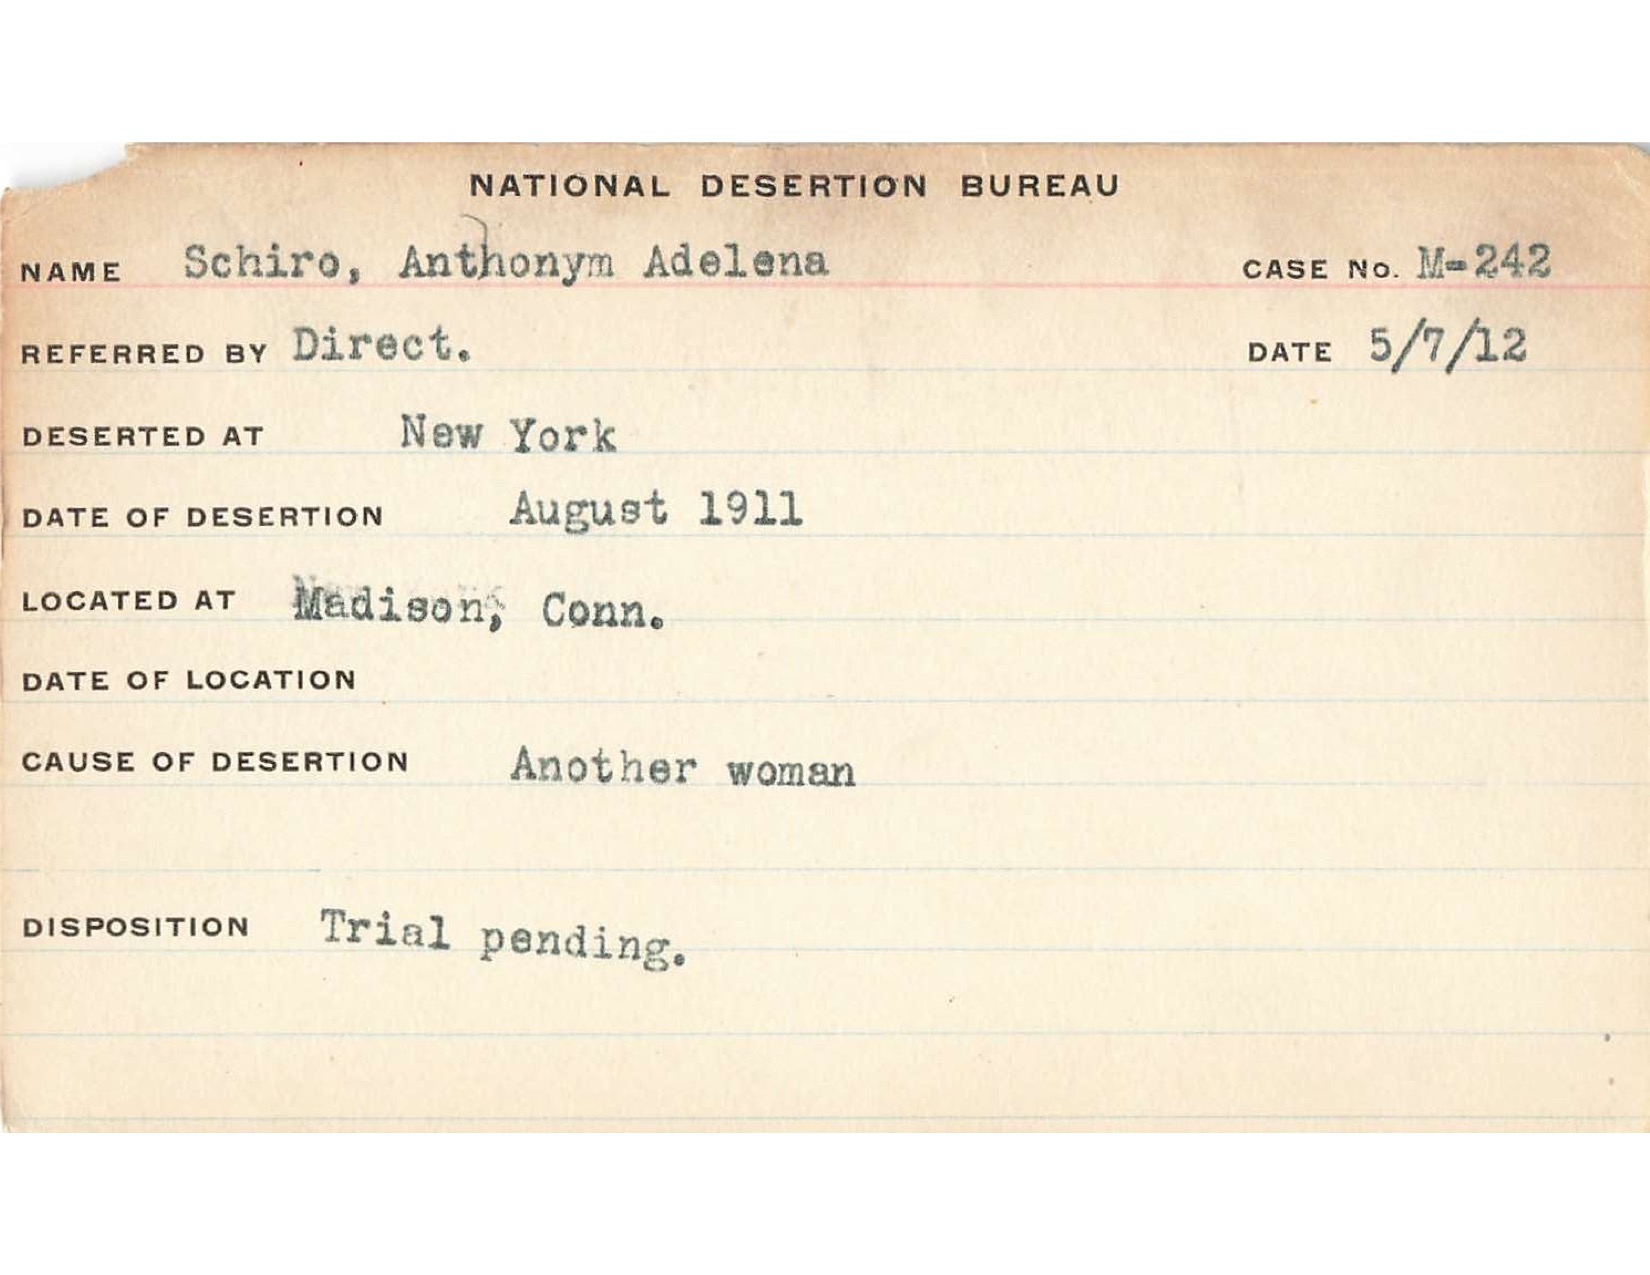 NATIONAL DESERTION BUREAU
NAME Schiro, Anthonym Adelena CASE No. M-242
REFERRED BY Direct. DATE 5/7/12
DESERTED AT New York
DATE OF DESERTION August 1911
LOCATED AT Madison, Conn.
DATE OF LOCATION
CAUSE OF DESERTION Another woman
DISPOSITION Trial pending.